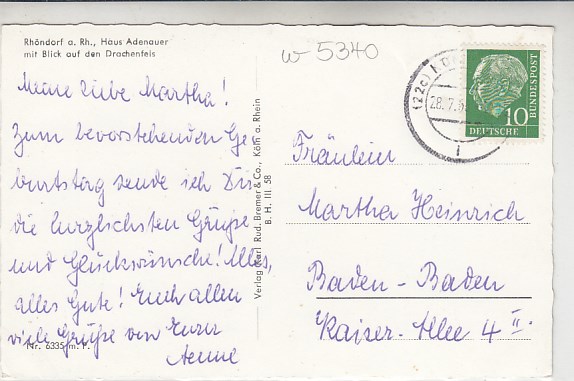 Rhöndorf a. Rh., Haus Adenauer
mit Blick auf den Drachenfels
Meine liebe Martha!
Zum bevorstehenden Ge-
burtstag sende ich Dir
die herzlichsten Grüße
und Glückwünsche! Alles,
alles Gute! Euch allen
viele Grüße von Eurer
Aenne
Nr. 6335 m. P.
Verlag Karl Rud. Bremer & Co., Köln a. Rhein
B. H. III. 58
w 5340
(22c)
28. 7. 5
10
DEUTSCHE
BUNDESPOST
Fräulein
Martha Heinrich
Baden-Baden
Kaiser-Allee 4 II.